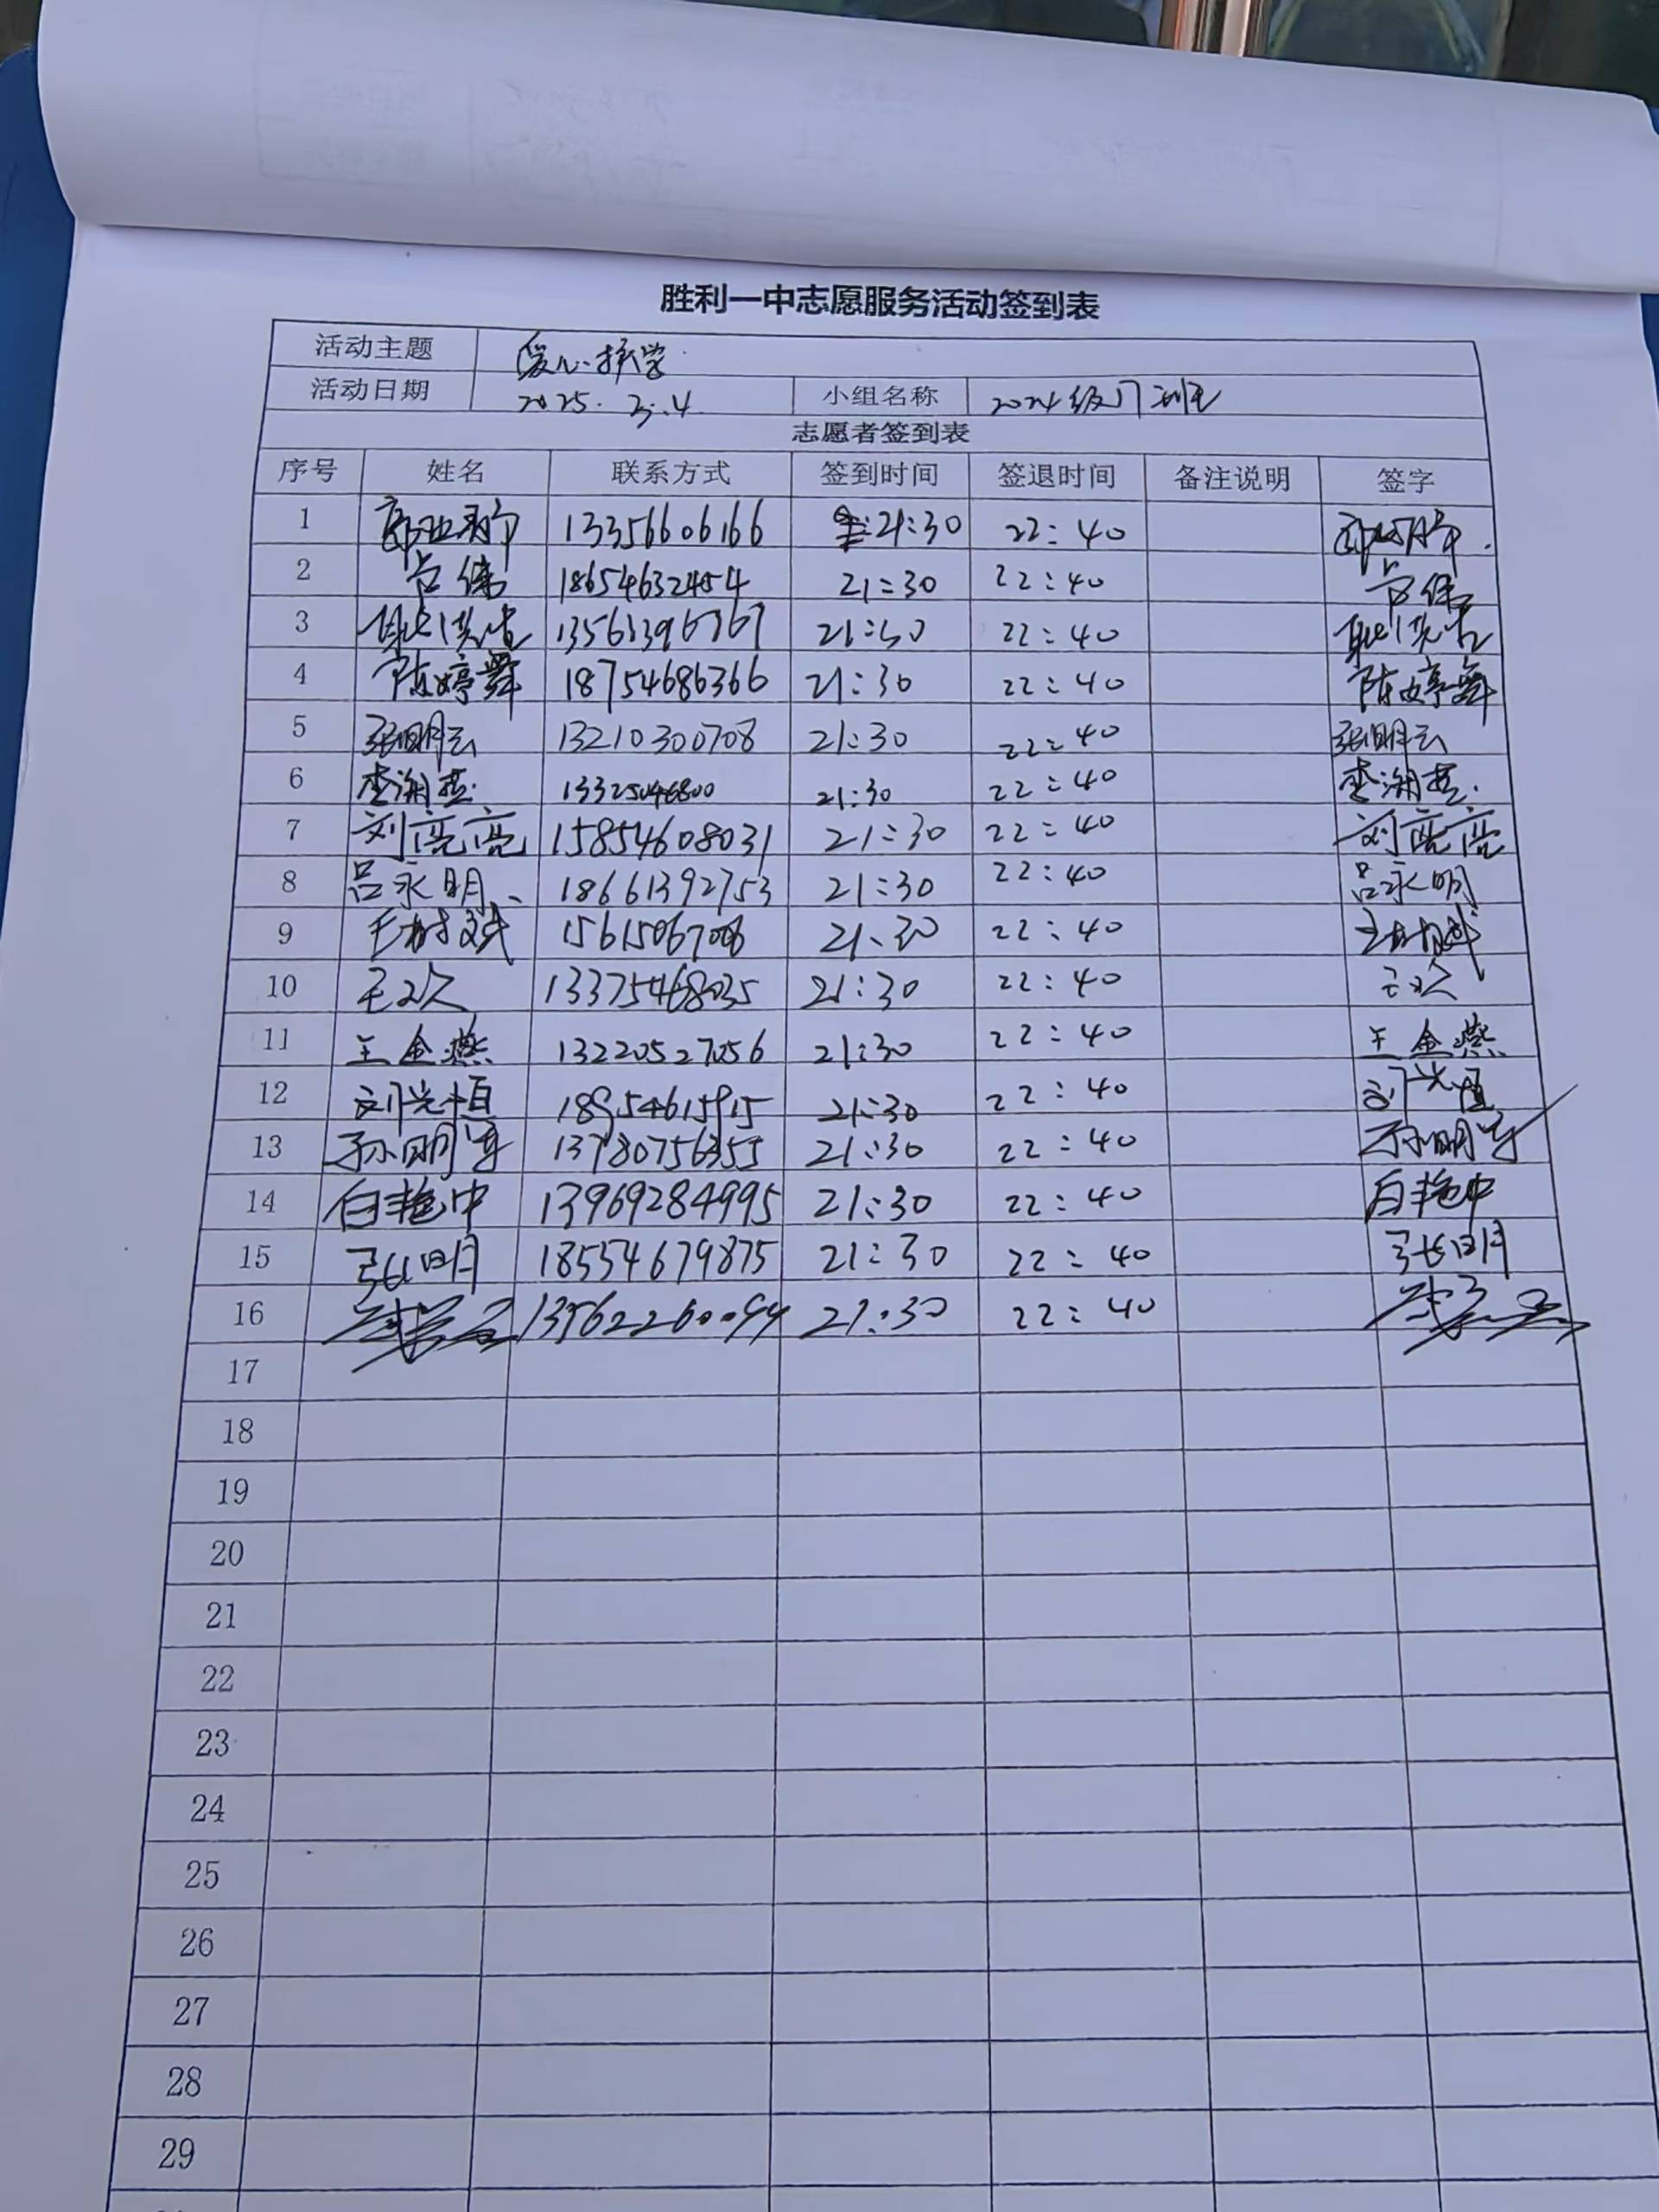 胜利一中志愿服务活动签到表
活动主题 爱心护学
活动日期 2025.3.4 小组名称 2024级 班
志愿者签到表
序号 姓名 联系方式 签到时间 签退时间 备注说明 签字
1 13356606166 21:30 22:40
2 18654632454 21:30 22:40
3 21:30 22:40
4 陈婷舞 18754686366 21:30 22:40 陈婷舞
5 张明云 13210300708 21:30 22:40 张明云
6 李湘燕 13325046800 21:30 22:40 李湘燕
7 刘亮亮 15854608031 21:30 22:40 刘亮亮
8 吕永明 18661392753 21:30 22:40 吕永明
9 21:30 22:40
10 21:30 22:40
11 王金燕 13220527056 21:30 22:40 王金燕
12 18954615915 21:30 22:40
13 21:30 22:40
14 白艳中 13969284995 21:30 22:40 白艳中
15 张明 18554679875 21:30 22:40 张明
16 21:30 22:40
17
18
19
20
21
22
23
24
25
26
27
28
29